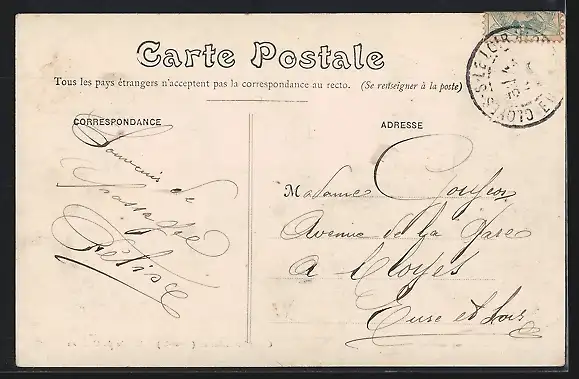 Carte Postale
Tous les pays étrangers n'acceptent pas la correspondance au recto. (Se renseigner à la poste)
CORRESPONDANCE
ADRESSE
Souvenir de
passage
Félise
Madame Goujon
Avenue de la Gare
à Cloyes
Eure et Loir
CLOYES-S-LE LOIR